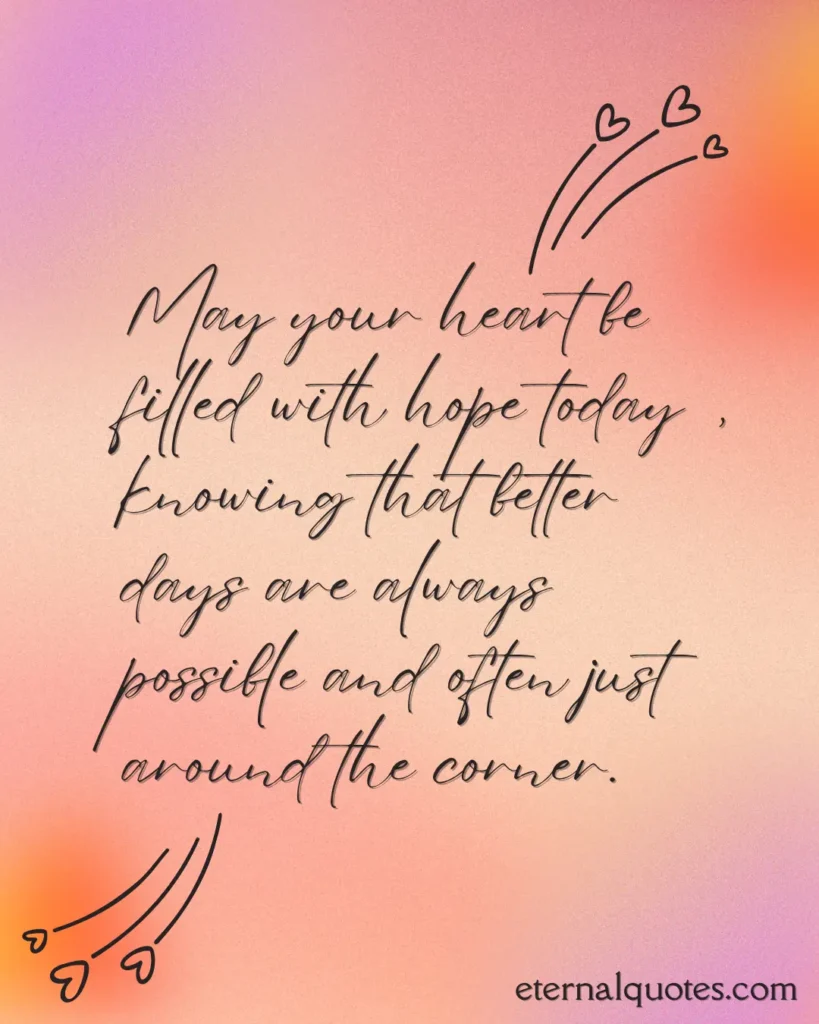 May your heart be
filled with hope today ,
knowing that better
days are always
possible and often just
around the corner.
eternalquotes.com